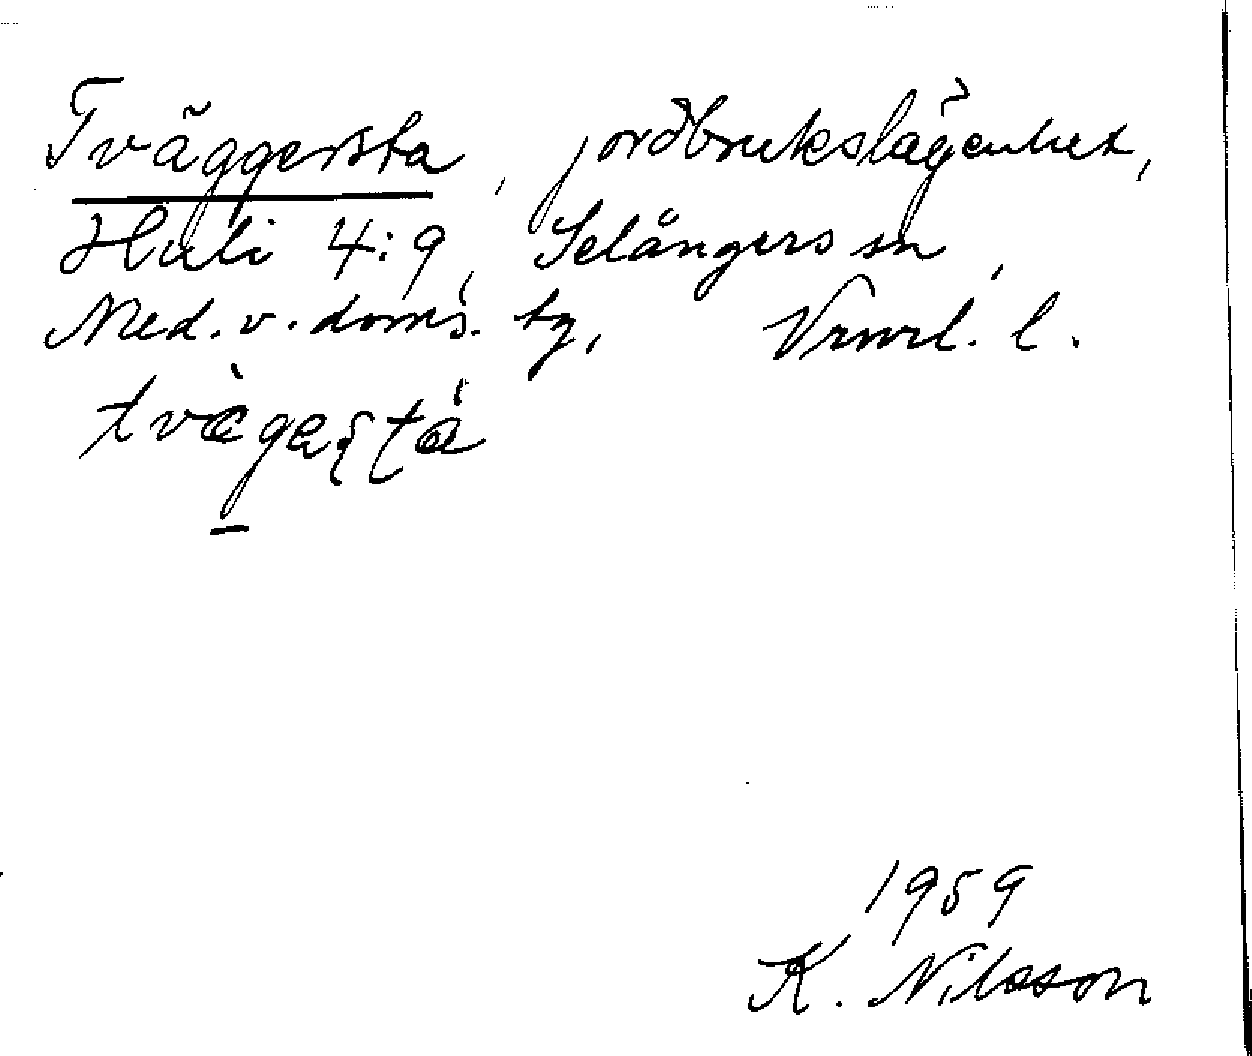 Tväggersta, jordbrukslägenhet,
Huli 4:9, Selångers sn,
Med. v. doms. tg, Vrnrl. l.
tvæ̀gaʂʈá
1959
K. Nilsson